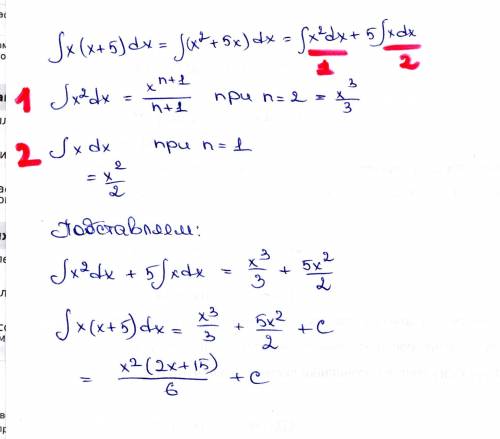 ∫x(x+5)dx = ∫(x²+5x)dx = ∫x²dx + 5∫xdx
1 2
1 ∫x²dx = x^(n+1)/(n+1) при n=2 = x³/3
2 ∫xdx при n=1
= x²/2
Подставляем:
∫x²dx + 5∫xdx = x³/3 + 5x²/2
∫x(x+5)dx = x³/3 + 5x²/2 + c
= x²(2x+15)/6 + c